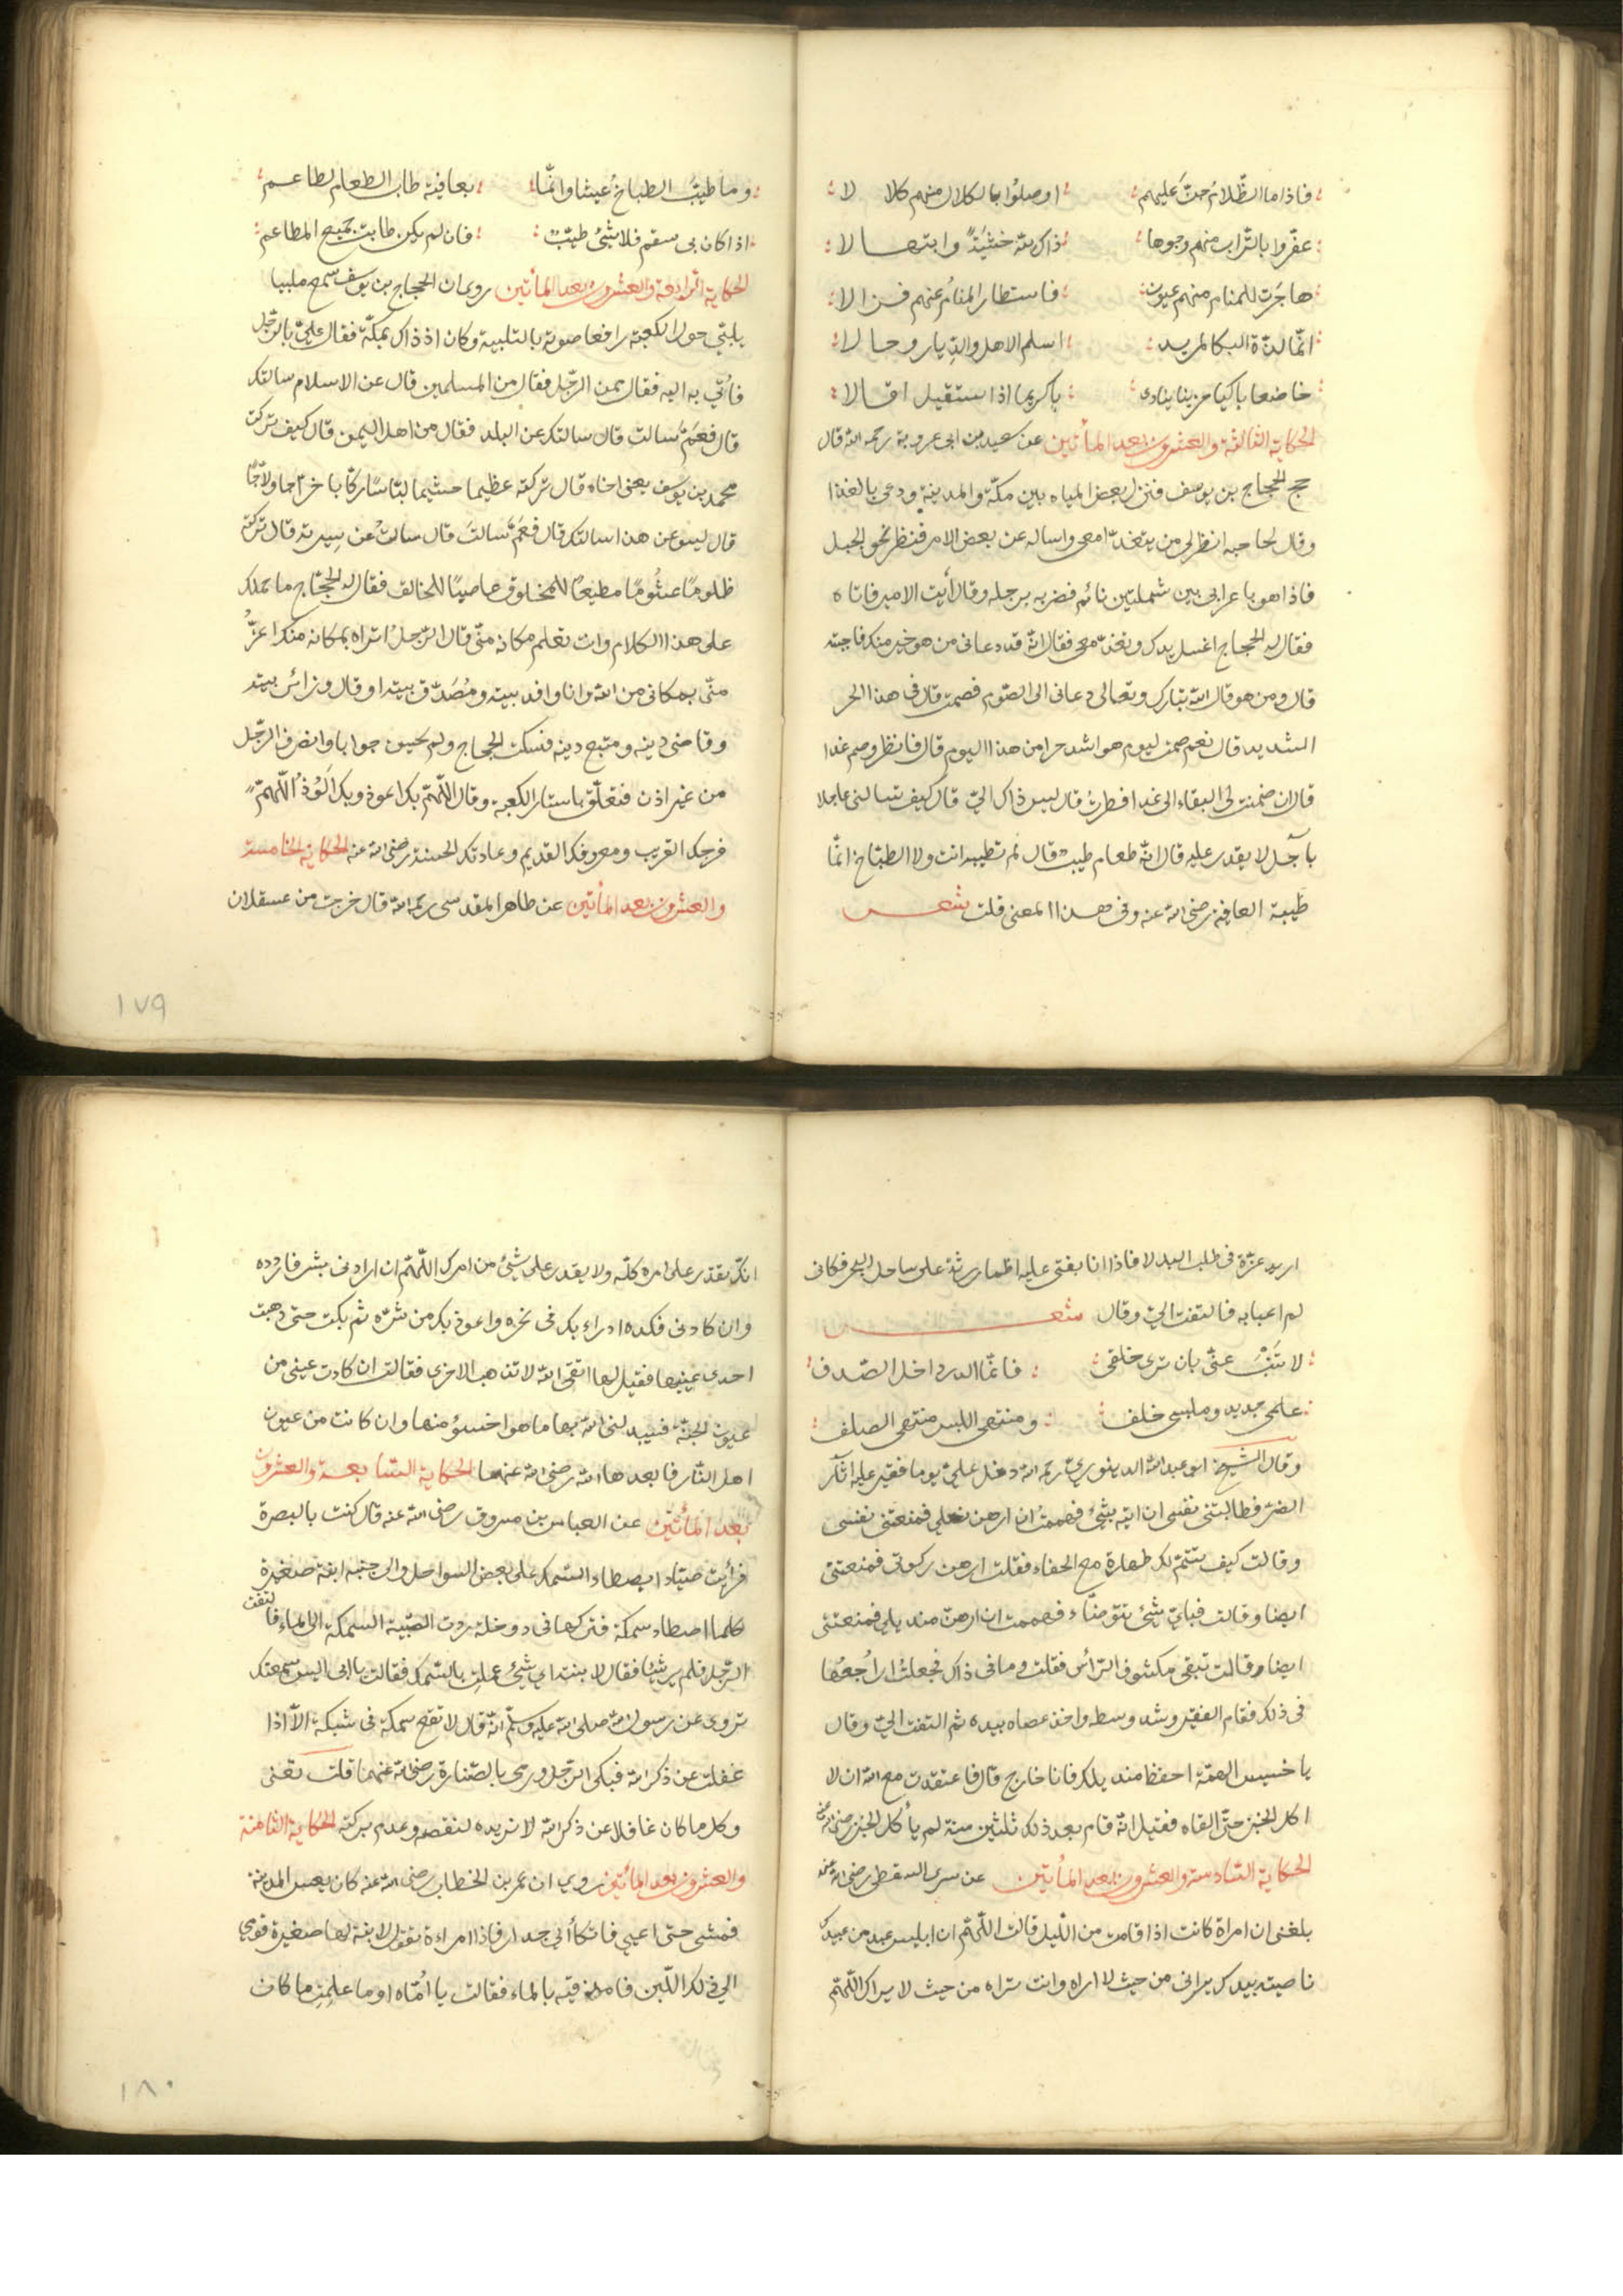 فاذا ما الظّلام جنّ عليهم اوصلوا بالكلال منهم كلالا
عفّروا بالتراب منهم وجوها ذاك لله خشيةً وابتهالا
هاجرت للمنام منهم عيون فاستطار المنام عنهم فزالا
انّما لذّة البكا لمريد اسلم الاهل والديار وحالا
خاضعا باكيا حزينا ينادى يا كريما اذا استقيل اقالا
الحكاية الثالثة والعشرون بعد المأتين عن سعيد بن ابى عروبة رحمه الله قال
حج الحجاج بن يوسف فنزل بعض المياه بين مكّة والمدينة ودعى بالغذا
وقال لحاجبه انظر لى من يتغدّا معى واساله عن بعض الامر فنظر نحو الجبل
فاذا هو باعرابى بين شملتين نائم فضربه برجله وقال أيت الامير فاتاه
فقال له الحجاج اغسل يدك وتغدّ معى فقال انّه قد دعانى من هو خير منك فاجبته
قال ومن هو قال الله تبارك وتعالى دعانى الى الصّوم فصمت قال فى هذا الحر
الشديد قال نعم صمت ليوم هو اشد حرا من هذا اليوم قال فافطر وصم غدا
قال ان ضمنت لى البقاء الى غد افطرت قال ليس ذاك الىّ قال كيف تسالنى عاجلا
بآجل لا يقدر عليه قال انّه طعام طيب قال لم تطيبه انت ولا الطبّاخ انّما
طيبة العافية رضى الله عنه وفى هذا المعنى قلت شعر
وما طيّب الطباخ عيشا وانّما بعافية طاب الطعام لطاعم
اذا كان بى سقم فلا شئ طيّب فان لم يكن طابت جميع المطاعم
الحكاية الرابعة والعشرون بعد المأتين روى ان الحجاج بن يوسف سمع ملبيا
يلبّي حول الكعبة رافعا صوته بالتلبية وكان اذ ذاك بمكّة فقال علىّ بالرّجل
فأتي به اليه فقال ممن الرّجل فقال من المسلمين قال عن الاسلام سالتك
قال فعمّ سالت قال سالتك عن البلد فقال من اهل اليمن قال كيف تركت
محمد بن يوسف يعنى اخاه قال تركته عظيما جسيما لبّاسًا ركّابا خراجا ولّاجًا
قال ليس عن هذا سالتك قال فعمّ سالت قال سالت عن سيرته قال تركته
ظلومًا غشُومًا مطيعًا للمخلوق عاصيًا للخالق فقال له الحجّاج ما حملك
على هذا الكلام وانت تعلم مكانه منّى قال الرّجل اتراه بمكانه منك اعزّ
منّى بمكانى من الله وانا وافد بيته ومُصدّق نبيّه او قال وزائر بيته
وقاضى دينه ومتبع دينه فسكت الحجاج ولم يحسن جوابا وانصرف الرّجل
من غير اذن فتعلّق باستار الكعبة وقال اللّهمّ بك اعوذ وبك الوذ اللّهمّ
فرجك القريب ومعروفك القديم وعادتك الحسنة رضى الله عنه الحكاية الخامسة
والعشرون بعد المأتين عن طاهر المقدسى رحمه الله قال خرجت من عسقلان
١٧٩
اريد غزّة فى طلب البدلا فاذا انا بفتى عليه اطمار رثة على ساحل البحر فكانى
لم اعبا به فالتفت الىّ وقال شعر
لا تنب عنّى بان ترى خلقى فانّما الدر داخل الصّدف
علمى جديد وملبسى خلف ومنتهى اللبس منتهى الصلف
وقال الشيخ ابو عبد الله الدينوري رحمه الله دخل علىّ يوما فقير عليه اثار
الضر فطالبتنى نفسى ان ايته بشئ فهممت ان ارهن نعلى فمنعتنى نفسى
وقالت كيف تتمّ لك طهارة مع الحفاء فقلت ارهن ركوتى فمنعتنى
ايضا وقالت فباىّ شئ تتوضّاء فهممت ان ارهن منديلى فمنعتنى
ايضا وقالت تبقى مكشوف الرّأس فقلت وما فى ذاك فجعلت اراجعها
فى ذلك فقام الفقير وشد وسطه واخذ عصاه بيده ثم التفت الىّ وقال
يا خسيس الهمّة احفظ منديلك فانا خارج قال فاعتقدت مع الله ان لا
اكل الخبز حتّى القاه فقيل انّه قام بعد ذلك ثلثين سنة لم يأكل الخبز رضى الله عنه
الحكاية السّادسة والعشرون بعد المأتين عن سرى السقطى رضى الله عنه
بلغنى ان امراة كانت اذا قامت من اللّيل قالت اللّهمّ ان ابليس عبد من عبيدك
ناصيته بيدك يرانى من حيث لا اراه وانت تراه من حيث لا يراك اللّهمّ
انّك تقدر على امره كلّه ولا يقدر على شئ من امرك اللّهمّ ان ارادنى بشر فاردده
وان كادنى فكده ادراء بك فى نحره واعوذ بك من شرّه ثم بكت حتى ذهبت
احدى عينيها فقيل لها اتقى الله لا تذهب الاخرى فقالت ان كادت عينى من
عيون الجنّة فسيبدلنى الله بها ما هو احسن منها وان كانت من عيون
اهل النّار فابعدها الله رضى الله عنها الحكاية السّابعة والعشرون
بعد المأتين عن العباس بن مسروق رضى الله عنه قال كنت بالبصرة
فرأيت صيّادا يصطاد السّمك على بعض السواحل والى جنبه ابنة صغيرة
كلما اصطاد سمكة فتركها فى دوخلة ردت الصّبية السمكة الى الماء فالتفت
الرّجل فلم ير شيئا فقال لابنته اي شئ عملت بالسّمك فقالت يا ابى اليس سمعتك
تروى عن رسول الله صلى الله عليه وسلّم انّه قال لا تقع سمكة فى شبكة الّا اذا
غفلت عن ذكر الله فبكى الرّجل ورمى بالصّنارة رضى الله عنهما قلت تعنى
وكل ما كان غافلا عن ذكر الله لا نريده لنقصه وعدم بركته الحكاية الثامنة
والعشرون بعد المأتين روى ان عمر بن الخطاب رضى الله عنه كان يعسّ المدينة
فمشى حتى اعيى فاتكأ الى جدار فاذا امراءة تقول لابنة لها صغيرة قومى
الى ذلك اللّبن فامذقيه بالماء فقالت يا امّتاه اوما علمت ما كان
١٨٠